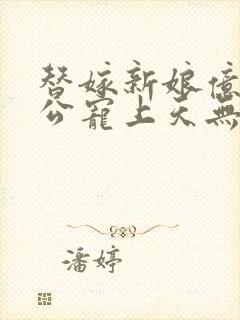 替嫁新娘億
公寵上天無
潘婷